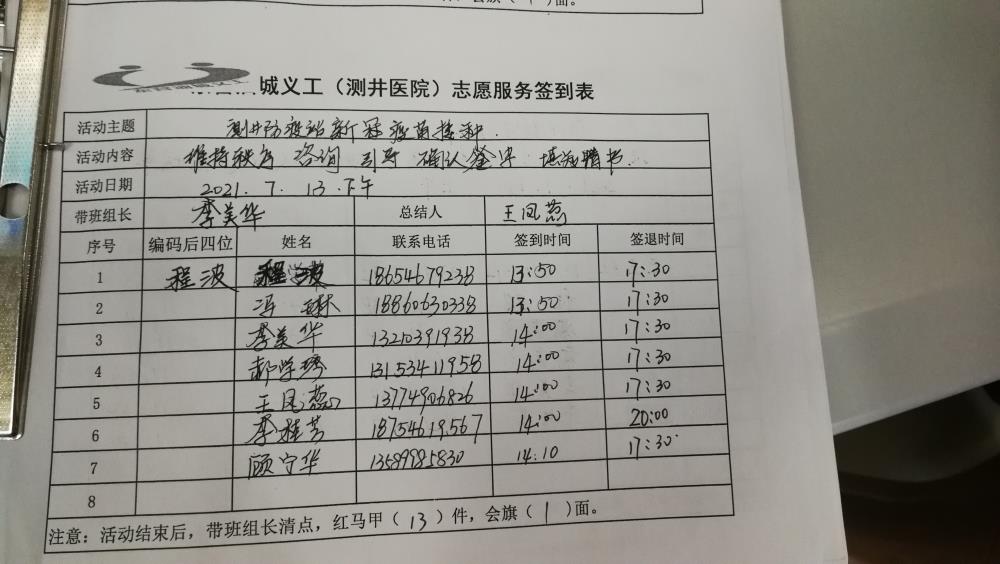 会旗（1）面。
城义工（测井医院）志愿服务签到表
活动主题 测井防疫站新冠疫苗接种.
活动内容 维持秩序 咨询 引导 确认签字 填写
活动日期 2021.7.13.下午
带班组长 李美华 总结人 王凤蕊
序号 编码后四位 姓名 联系电话 签到时间 签退时间
1 程波 程波 18654679238 13:50 17:30
2 冯琳 18860630338 13:50 17:30
3 李美华 13210391938 14:00 17:30
4 郝学琴 13153411958 14:00 17:30
5 王凤蕊 13774906826 14:00 17:30
6 李桂芳 18754619567 14:00 20:00
7 顾宁华 13589985830 14:10 17:30
8
注意：活动结束后，带班组长清点，红马甲（13）件，会旗（1）面。